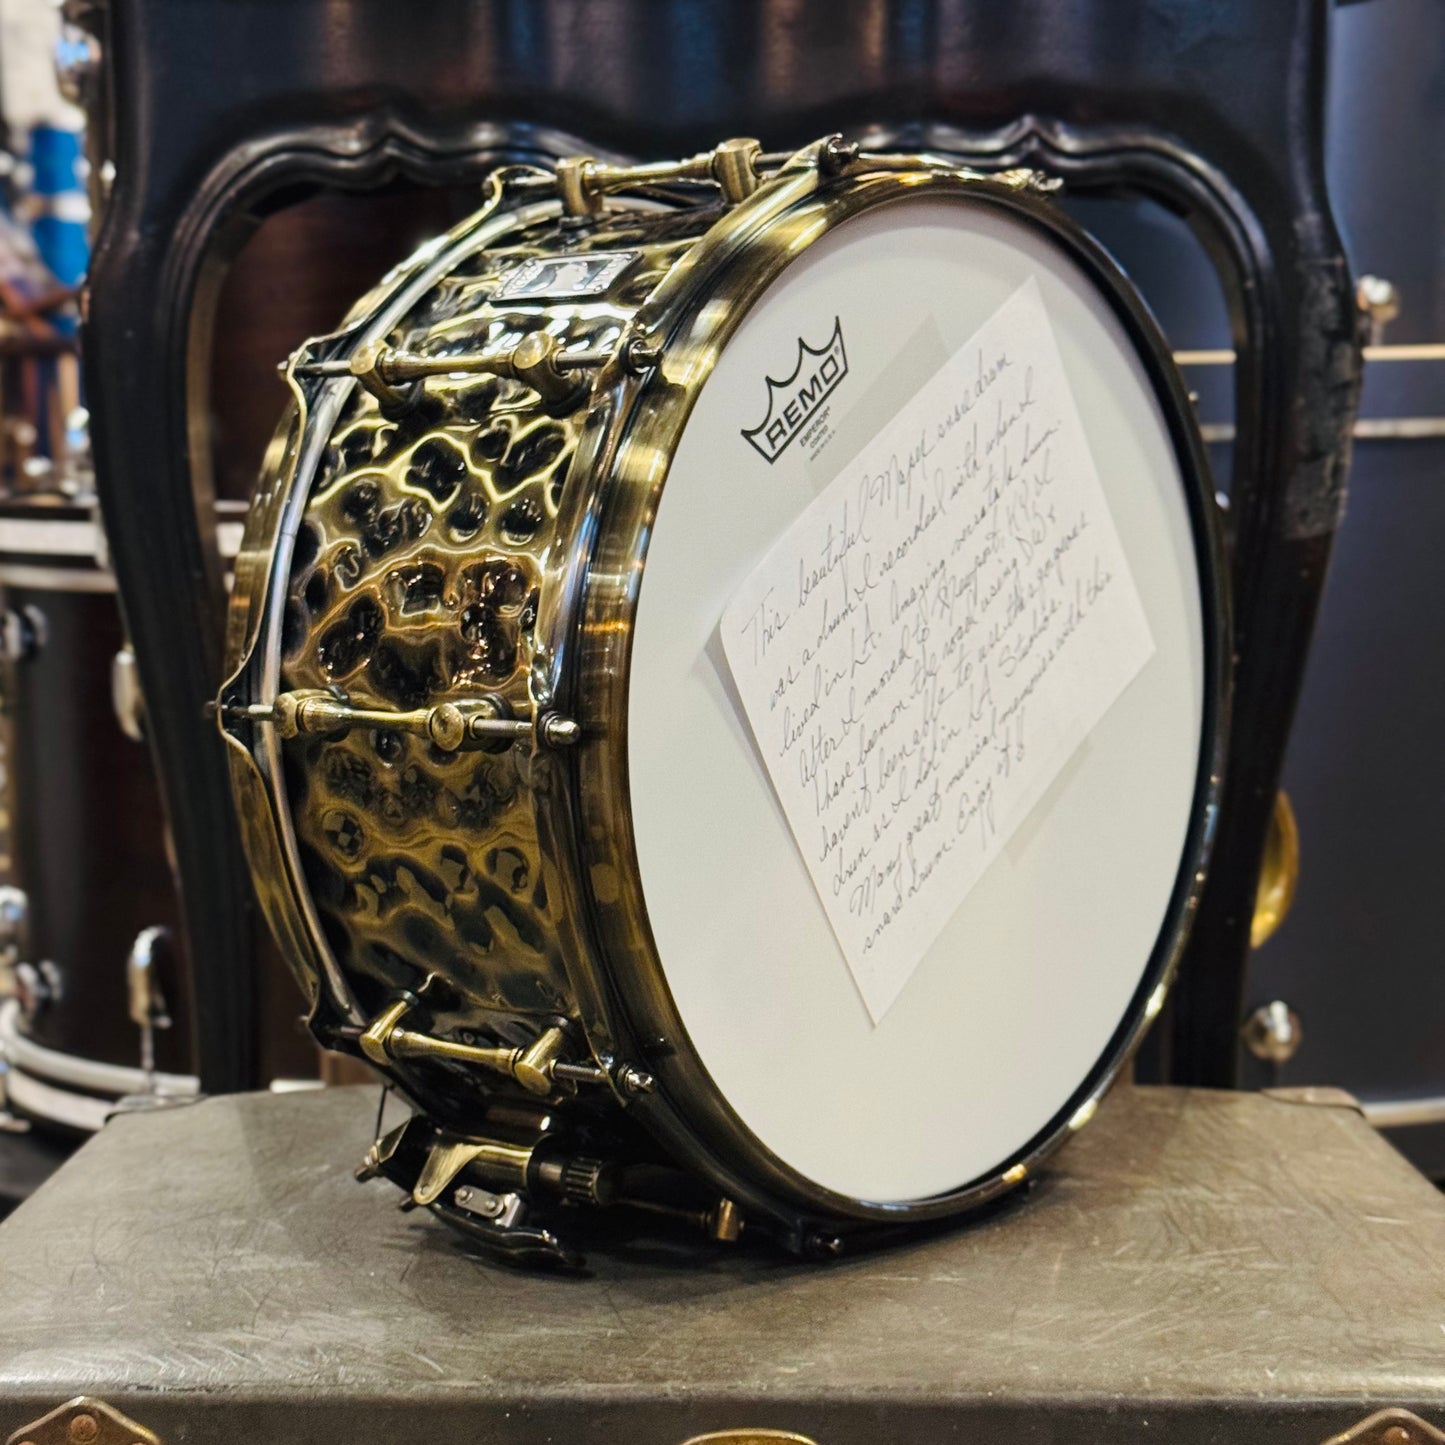 REMO®
EMPEROR®
COATED
This beautiful Mapex snare drum
was a drum I recorded with when I
lived in LA. Amazing versatile drum.
After I moved to Freeport, NY, I
have been on the road using DW &
haven't been able to use this gorgeous
drum as I did in LA Studio's.
Many great musical memories with this
snare drum. Enjoy it!